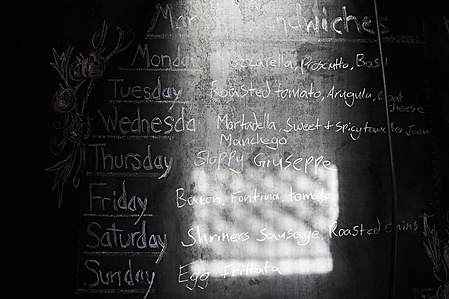 Monday Mozzarella, Prosciutto, Basil
Tuesday Roasted tomato, Arugula, Goat
cheese
Wednesda Mortadella, Sweet + Spicy tomato Jam
Manchego
Thursday Sloppy Giuseppe
Friday Bacon, Fontina, tomato
Saturday Shriners Sausage, Roasted
Sunday Egg Frittata